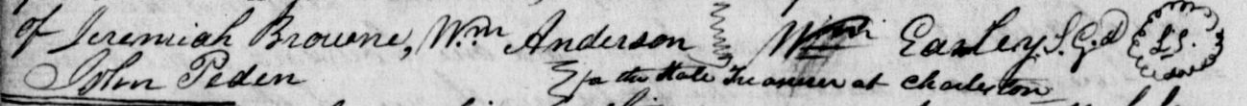 of Jeremiah Browne, Wm Anderson Wm Earley, S.G.d L.S.
John Peden for the State Treasurer at Charleston